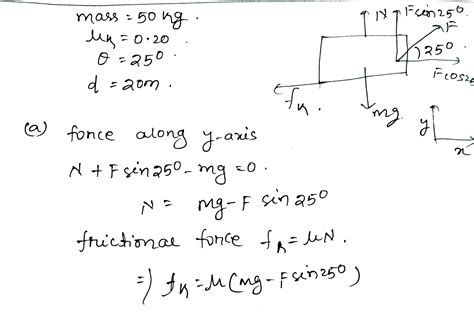 mass = 50 kg.
μk = 0.20
θ = 25°
d = 20m.
N
F sin25°
F
25°
F cos25
fk.
mg
y
x
(a) force along y-axis
N + F sin25° - mg = 0.
N = mg - F sin 25°
frictional force fk = μN.
=) fk = μ(mg - F sin25°)